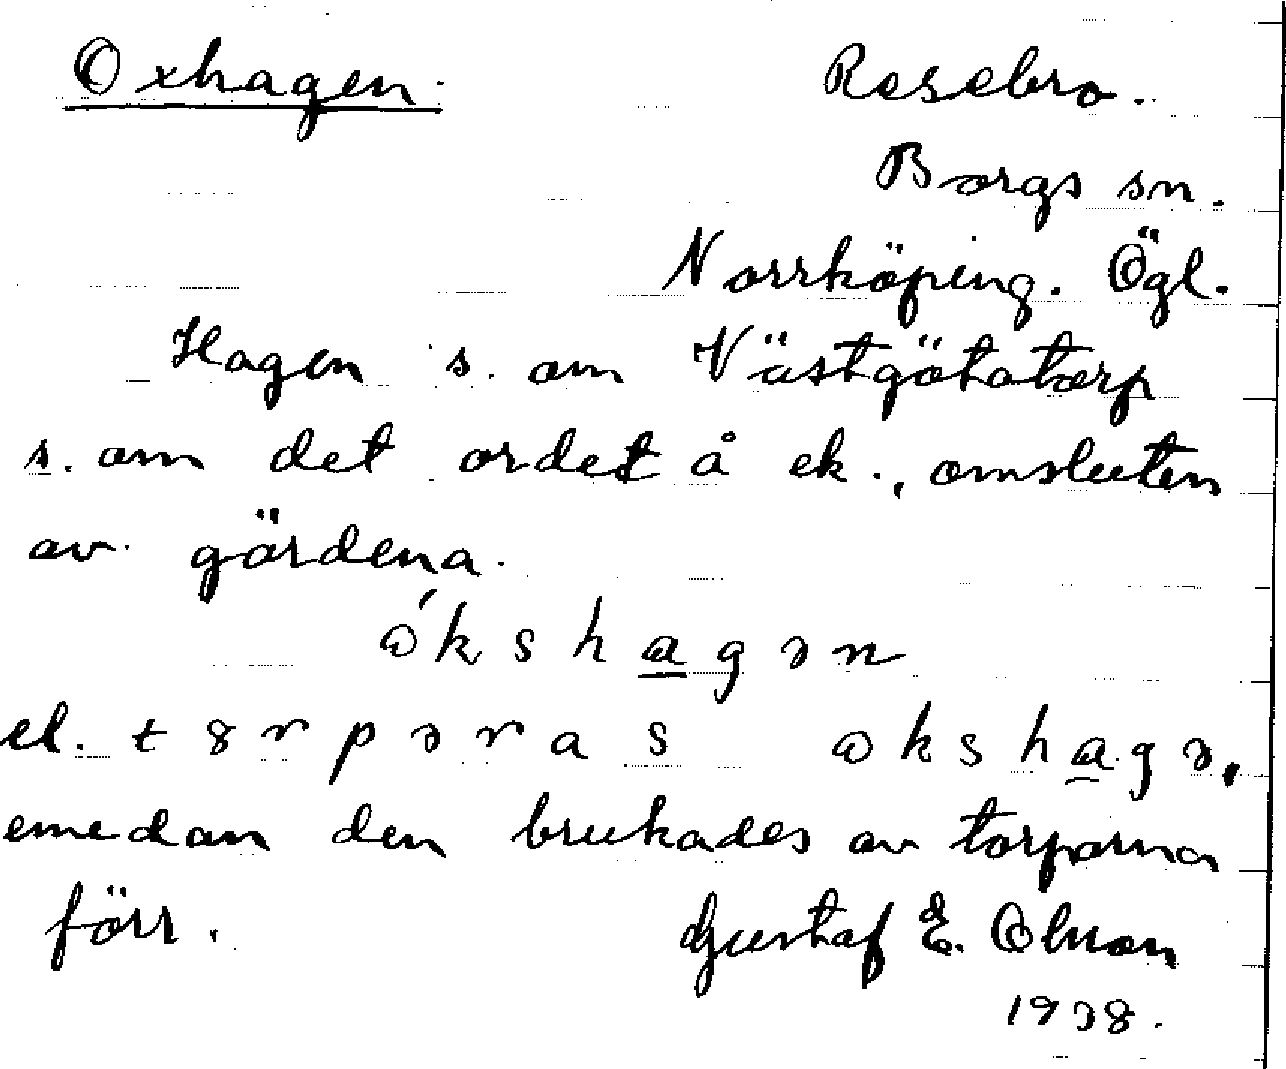 Oxhagen. Resebro.
Borgs sn.
Norrköping. Ögl.
Hagen s. om Västgötatorp
s. om det ordet å ek., omsluten
av gärdena.
ókshagən
el. tȣrpəras okshagə,
emedan den brukades av torparna
förr. Gustaf E. Olsson
1938.